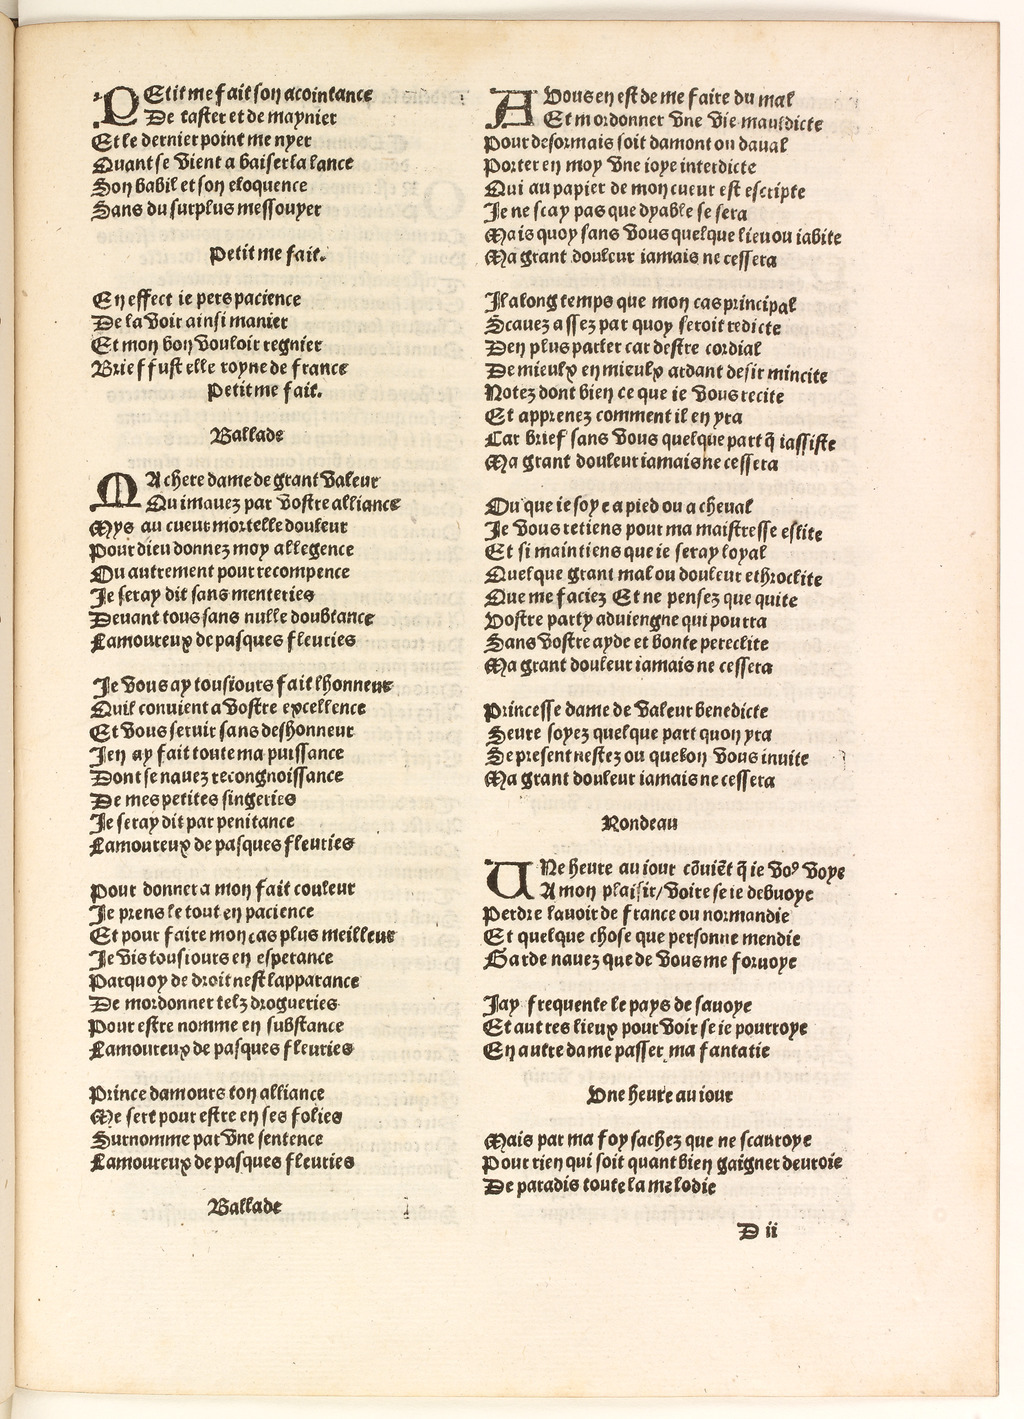 PEtit me fait son acointance
De taster et de maynier
Et le dernier point me nyer
Quant se vient a baiser la lance
Son babil et son eloquence
Sans du surplus messouyer
Petit me fait.
En effect ie pers pacience
De la voir ainsi manier
Et mon bon vouloir regnier
Brief fust elle royne de france
Petit me fait.
Ballade
MA chere dame de grant valeur
Qui mauez par vostre alliance
Mys au cueur mortelle douleur
Pour dieu donnez moy allegence
Ou autrement pour recompence
Je seray dit sans menteries
Deuant tous sans nulle doubtance
Lamoureux de pasques fleuries
Je vous ay tousiours fait lhonneur
Quil conuient a vostre excellence
Et vous seruir sans deshonneur
Jen ay fait toute ma puissance
Dont se nauez recongnoissance
De mes petites singeries
Je seray dit par penitance
Lamoureux de pasques fleuries
Pour donner a mon fait couleur
Je prens le tout en pacience
Et pour faire mon cas plus meilleur
Je vis tousiours en esperance
Parquoy de droit nest lapparance
De mordonner telz drogueries
Pour estre nomme en substance
Lamoureux de pasques fleuries
Prince damours ton alliance
Me sert pour estre en ses folies
Surnomme par vne sentence
Lamoureux de pasques fleuries
Ballade
A Vous en est de me faire du mal
Et mordonner vne vie mauldicte
Pour desormais soit damont ou daual
Porter en moy vne ioye interdicte
Qui au papier de mon cueur est escripte
Je ne scay pas que dyable se sera
Mais quoy sans vous quelque lieu ou iabite
Ma grant douleur iamais ne cessera
Il a long temps que mon cas principal
Scauez assez par quoy seroit redicte
Den plus parler car destre cordial
De mieulx en mieulx ardant desir mincite
Notez dont bien ce que ie vous recite
Et apprenez comment il en yra
Car brief sans vous quelque part q̄ iassiste
Ma grant douleur iamais ne cessera
Ou que ie soye a pied ou a cheual
Je vous retiens pour ma maistresse eslite
Et si maintiens que ie seray loyal
Quelque grant mal ou douleur ethroclite
Que me faciez Et ne pensez que quite
Vostre party aduiengne qui pourra
Sans vostre ayde et bonte pereclite
Ma grant douleur iamais ne cessera
Princesse dame de valeur benedicte
Seure soyez quelque part quon yra
Se present nestez ou quelon vous inuite
Ma grant douleur iamais ne cessera
Rondeau
UNe heure au iour cōuiēt q̄ ie voꝰ voye
A mon plaisir/voire se ie debuoye
Perdre lauoir de france ou normandie
Et quelque chose que personne mendie
Garde nauez que de vous me foruoye
Jay frequente le pays de sauoye
Et autres lieux pour voir se ie pourroye
En autre dame passer ma fantasie
Vne heure au iour
Mais par ma foy sachez que ne scauroye
Pour rien qui soit quant bien gaigner deuroie
De paradis toute la melodie
D ii